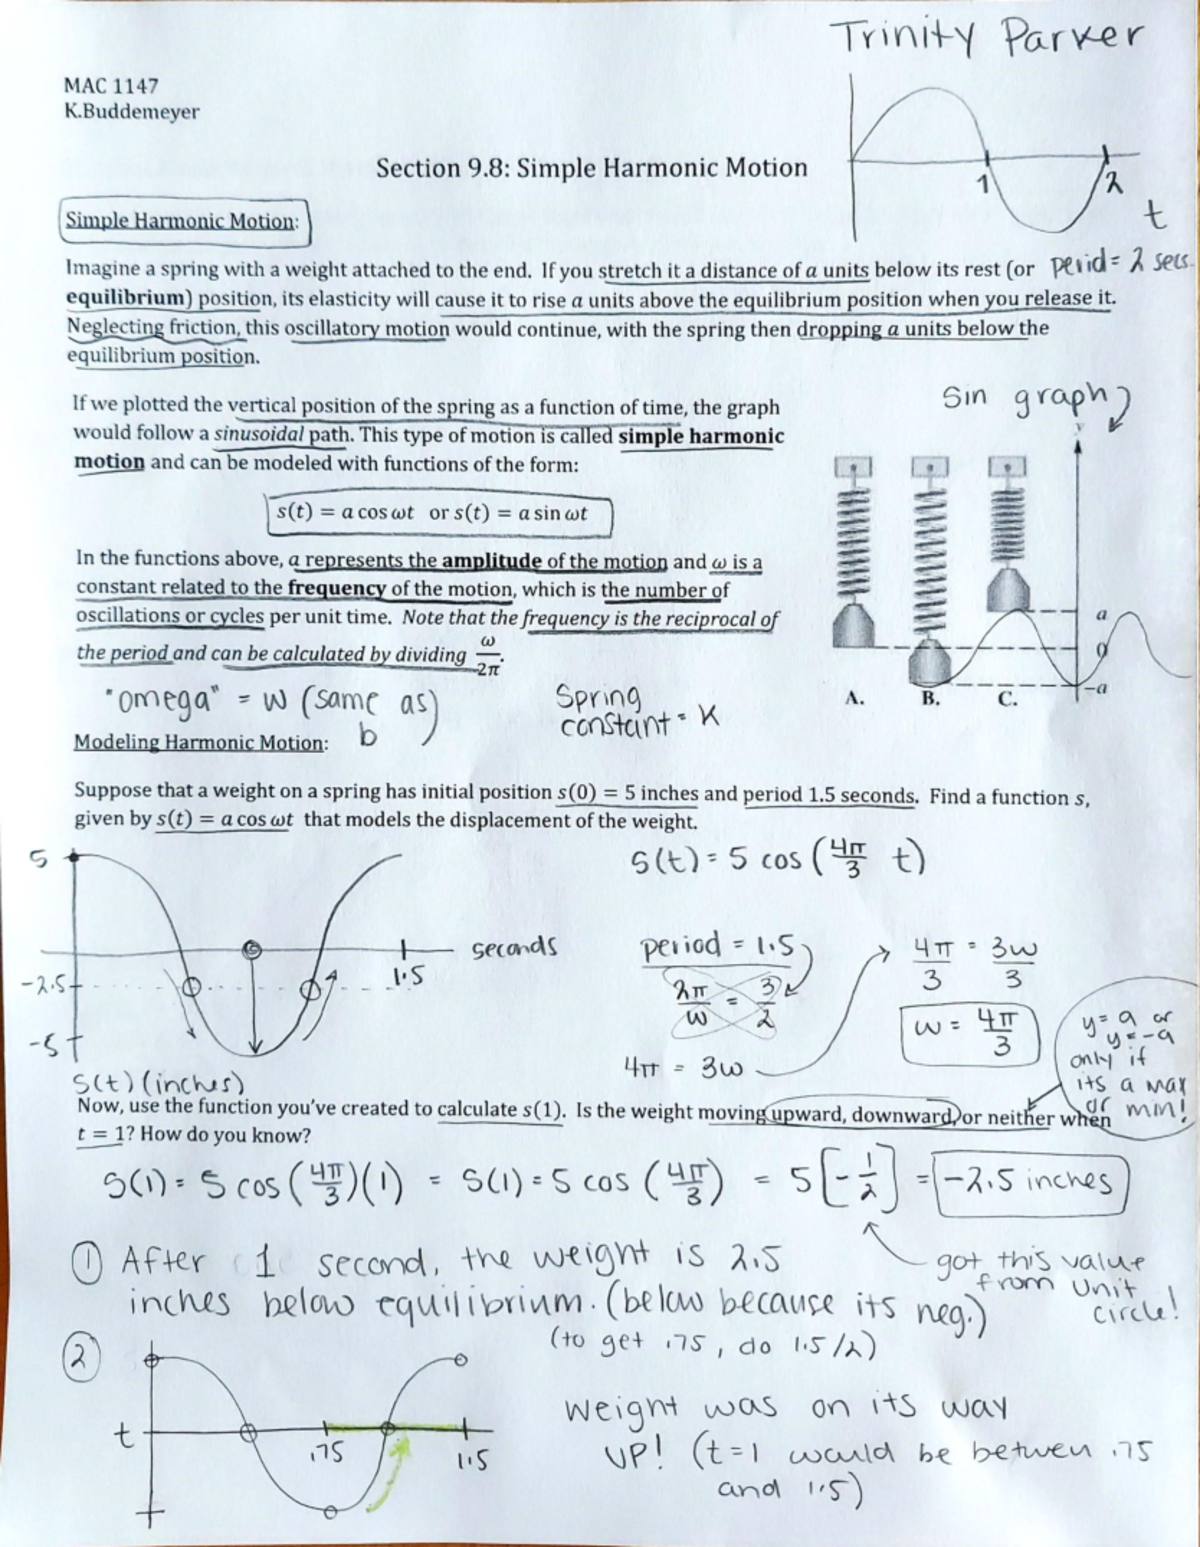 Trinity Parker
MAC 1147
K.Buddemeyer
1
2
t
Section 9.8: Simple Harmonic Motion
Simple Harmonic Motion:
Imagine a spring with a weight attached to the end. If you stretch it a distance of a units below its rest (or
period = 2 secs.
equilibrium) position, its elasticity will cause it to rise a units above the equilibrium position when you release it.
Neglecting friction, this oscillatory motion would continue, with the spring then dropping a units below the
equilibrium position.
Sin graph
If we plotted the vertical position of the spring as a function of time, the graph
would follow a sinusoidal path. This type of motion is called simple harmonic
motion and can be modeled with functions of the form:
y
s(t) = a cos ωt or s(t) = a sin ωt
In the functions above, a represents the amplitude of the motion and ω is a
constant related to the frequency of the motion, which is the number of
oscillations or cycles per unit time. Note that the frequency is the reciprocal of
the period and can be calculated by dividing ω/2π.
a
0
-a
A. B. C.
"omega" = w (same as) b
Spring
constant = K
Modeling Harmonic Motion:
Suppose that a weight on a spring has initial position s(0) = 5 inches and period 1.5 seconds. Find a function s,
given by s(t) = a cos ωt that models the displacement of the weight.
S(t) = 5 cos (4π/3 t)
5
-2.5
-5
1.5
seconds
S(t) (inches)
period = 1.5
2π/w = 3/2
4π = 3w
4π/3 = 3w/3
w = 4π/3
y = a or
y = -a
only if
its a max
or min!
Now, use the function you've created to calculate s(1). Is the weight moving upward, downward, or neither when
t = 1? How do you know?
S(1) = 5 cos (4π/3)(1) = S(1) = 5 cos (4π/3) = 5[-1/2] = -2.5 inches
got this value
from unit
circle!
① After 1 second, the weight is 2.5
inches below equilibrium. (below because its neg.)
(to get .75, do 1.5/2)
②
t
.75
1.5
Weight was on its way
UP! (t=1 would be betwen .75
and 1.5)